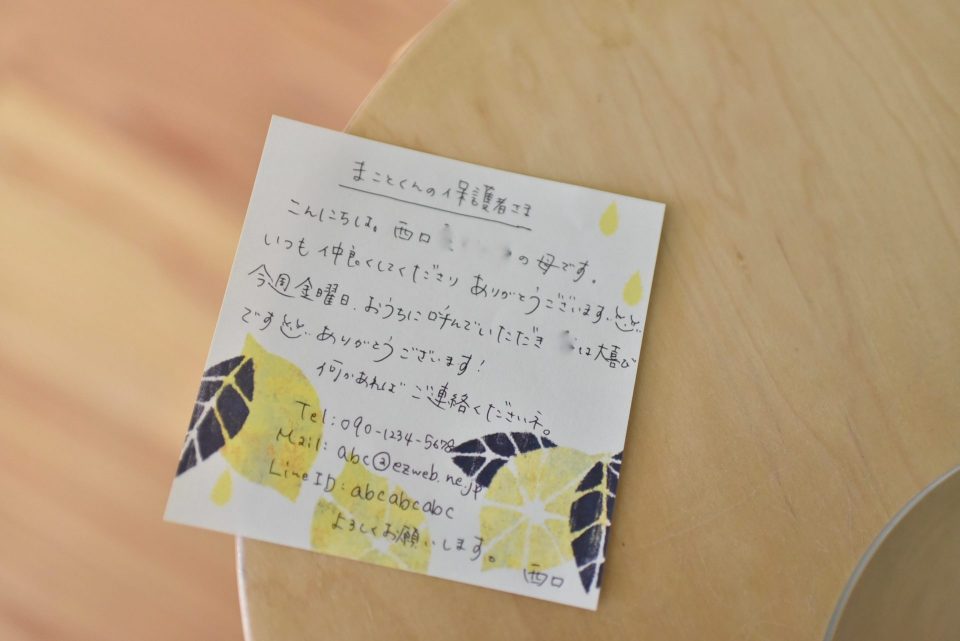 まことくんの保護者さま
こんにちは。西口 の母です。
いつも仲良くしてくださり ありがとうございます。
今週金曜日、おうちに呼んでいただき は大喜び
です ありがとうございます!
何かあれば ご連絡くださいネ。
Tel:090-1234-5678
Mail: abc@ezweb.ne.jp
Line ID:abcabcabc
よろしくお願いします。
西口